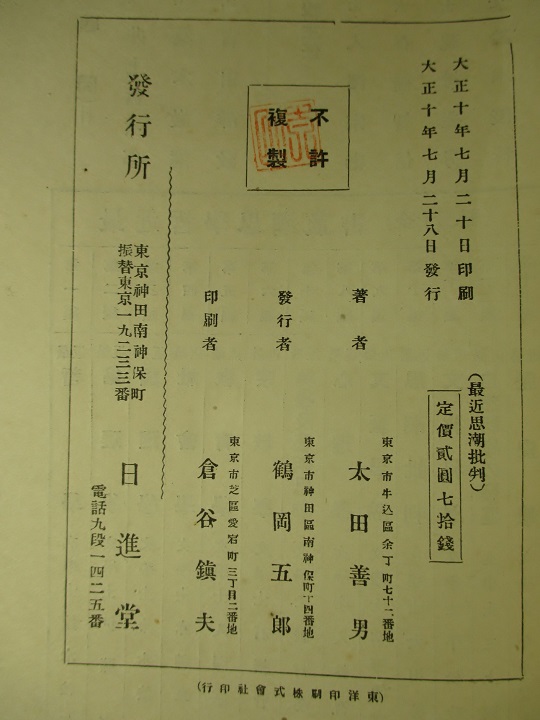 大正十年七月二十日印刷
大正十年七月二十八日發行
(最近思潮批判)
定價貳圓七拾錢
不許
複製
著者
東京市牛込區余丁町七十二番地
太田善男
發行者
東京市神田區南神保町十四番地
鶴岡五郎
印刷者
東京市芝區愛宕町三丁目二番地
倉谷鎮夫
發行所
東京神田南神保町
振替東京一九二三三番
日進堂
電話九段一四二五番
(東洋印刷株式會社印行)